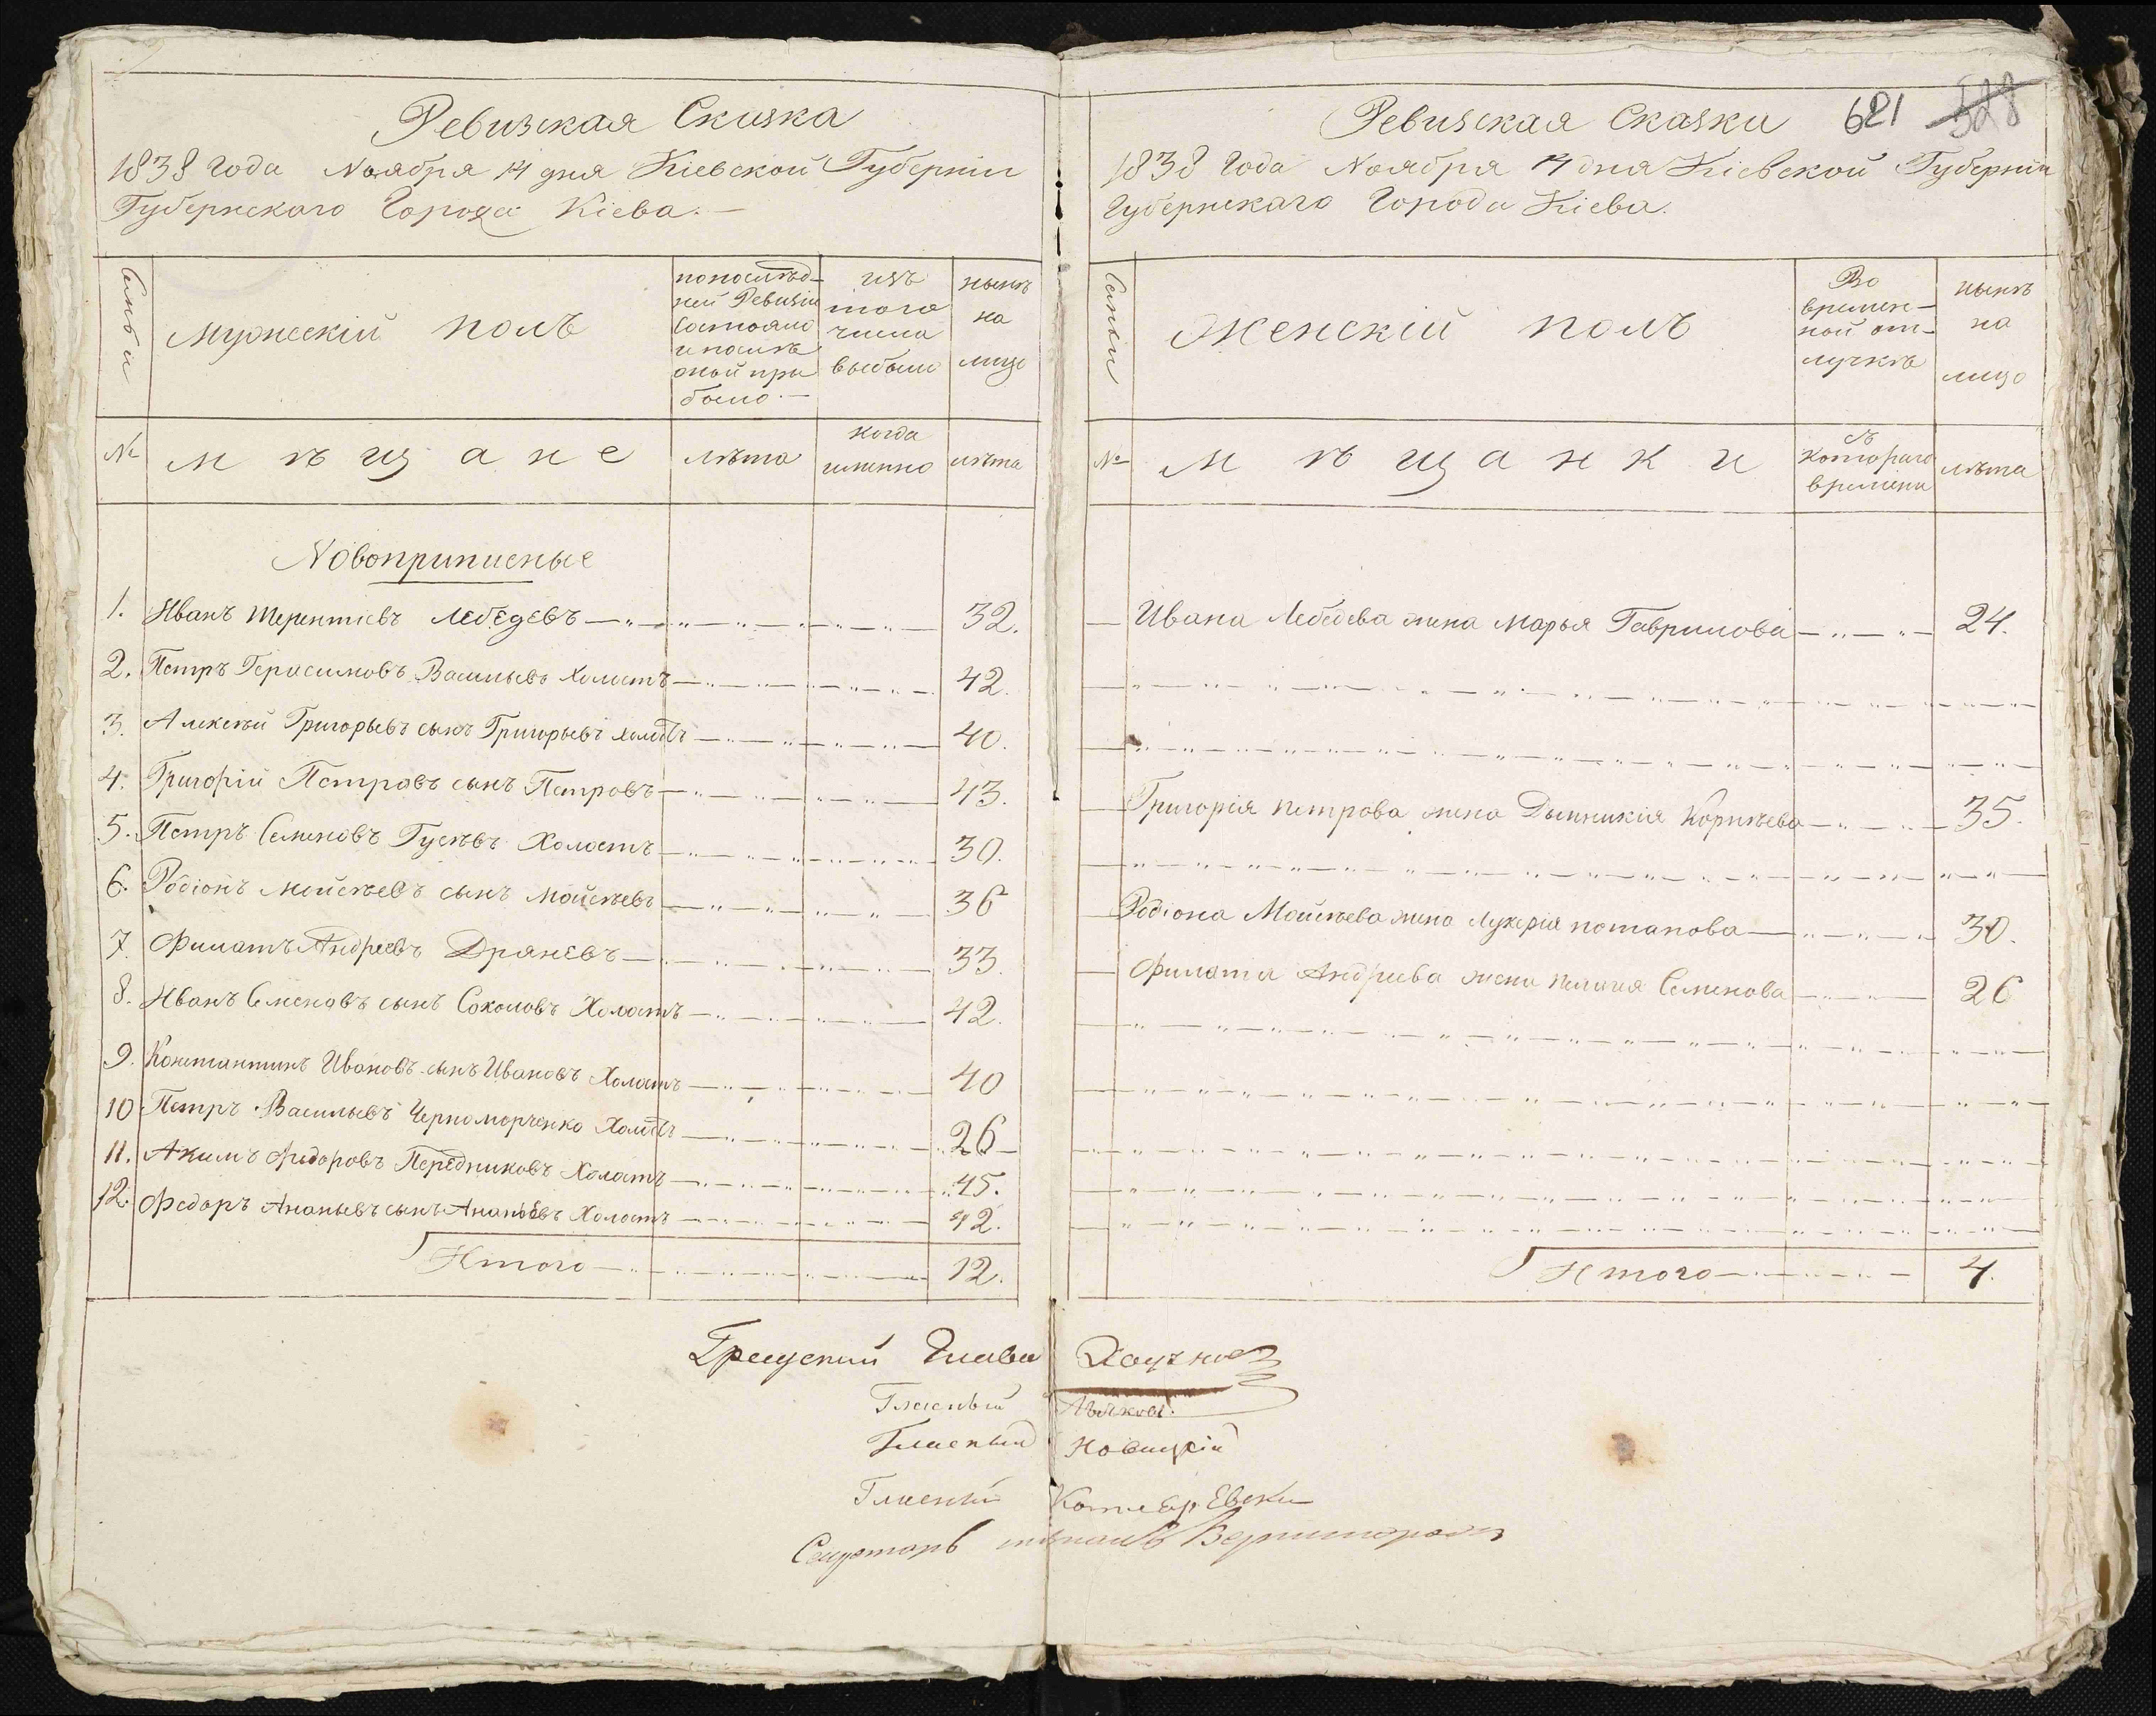 Ревизская Сказка
1838 года Ноября 14 дня Кіевской Губерніи
Губернскаго Города Кіева.—
Семьи
Мужескій полъ
по послѣд-
ней Ревизіи
Состояло
и послѣ
оной при
было.—
изъ
того
числа
выбыло
нынѣ
на
лицо
№
Мѣщане
лѣта
когда
именно
лѣта
Новоприписные
1. Иванъ Терентіевъ Лебедевъ 32.
2. Петръ Герасимовъ Васильевъ Холостъ 42.
3. Алексѣй Григорьевъ сынъ Григорьевъ холостъ 40.
4. Григорій Петровъ сынъ Петровъ 43.
5. Петръ Семеновъ Гусѣвъ Холостъ 30.
6. Родіонъ Мойсѣевъ сынъ Мойсѣевъ 36
7. Филатъ Андреевъ Дряневъ 33.
8. Иванъ Семеновъ сынъ Соколовъ Холостъ 42.
9. Константинъ Ивановъ сынъ Ивановъ Холостъ 40
10. Петръ Васильевъ Черноморченко Холостъ 26
11. Акимъ Федоровъ Передниковъ Холостъ 45.
12. Федоръ Ананьевъ сынъ Ананьевъ Холостъ 42.
Итого 12.
Ревизская Сказка 621 528
1838 Года Ноября 14 дня Кіевской Губерніи
Губернскаго Города Кіева.
Семьи
Женскій полъ
Во
времен-
ной от-
лучкѣ
нынѣ
на
лицо
№
Мѣщанки
съ
котораго
времени
лѣта
Ивана Лебедева жена Марья Гаврилова 24.
Григорія Петрова жена Корнѣева 35.
Родіона Мойсѣева жена Лукерія Потапова 30.
Филата Андреева жена Семенова 26
Итого 4.
Градский Глава
Гласный
Гласный Новицкій
Гласный
Секретарь